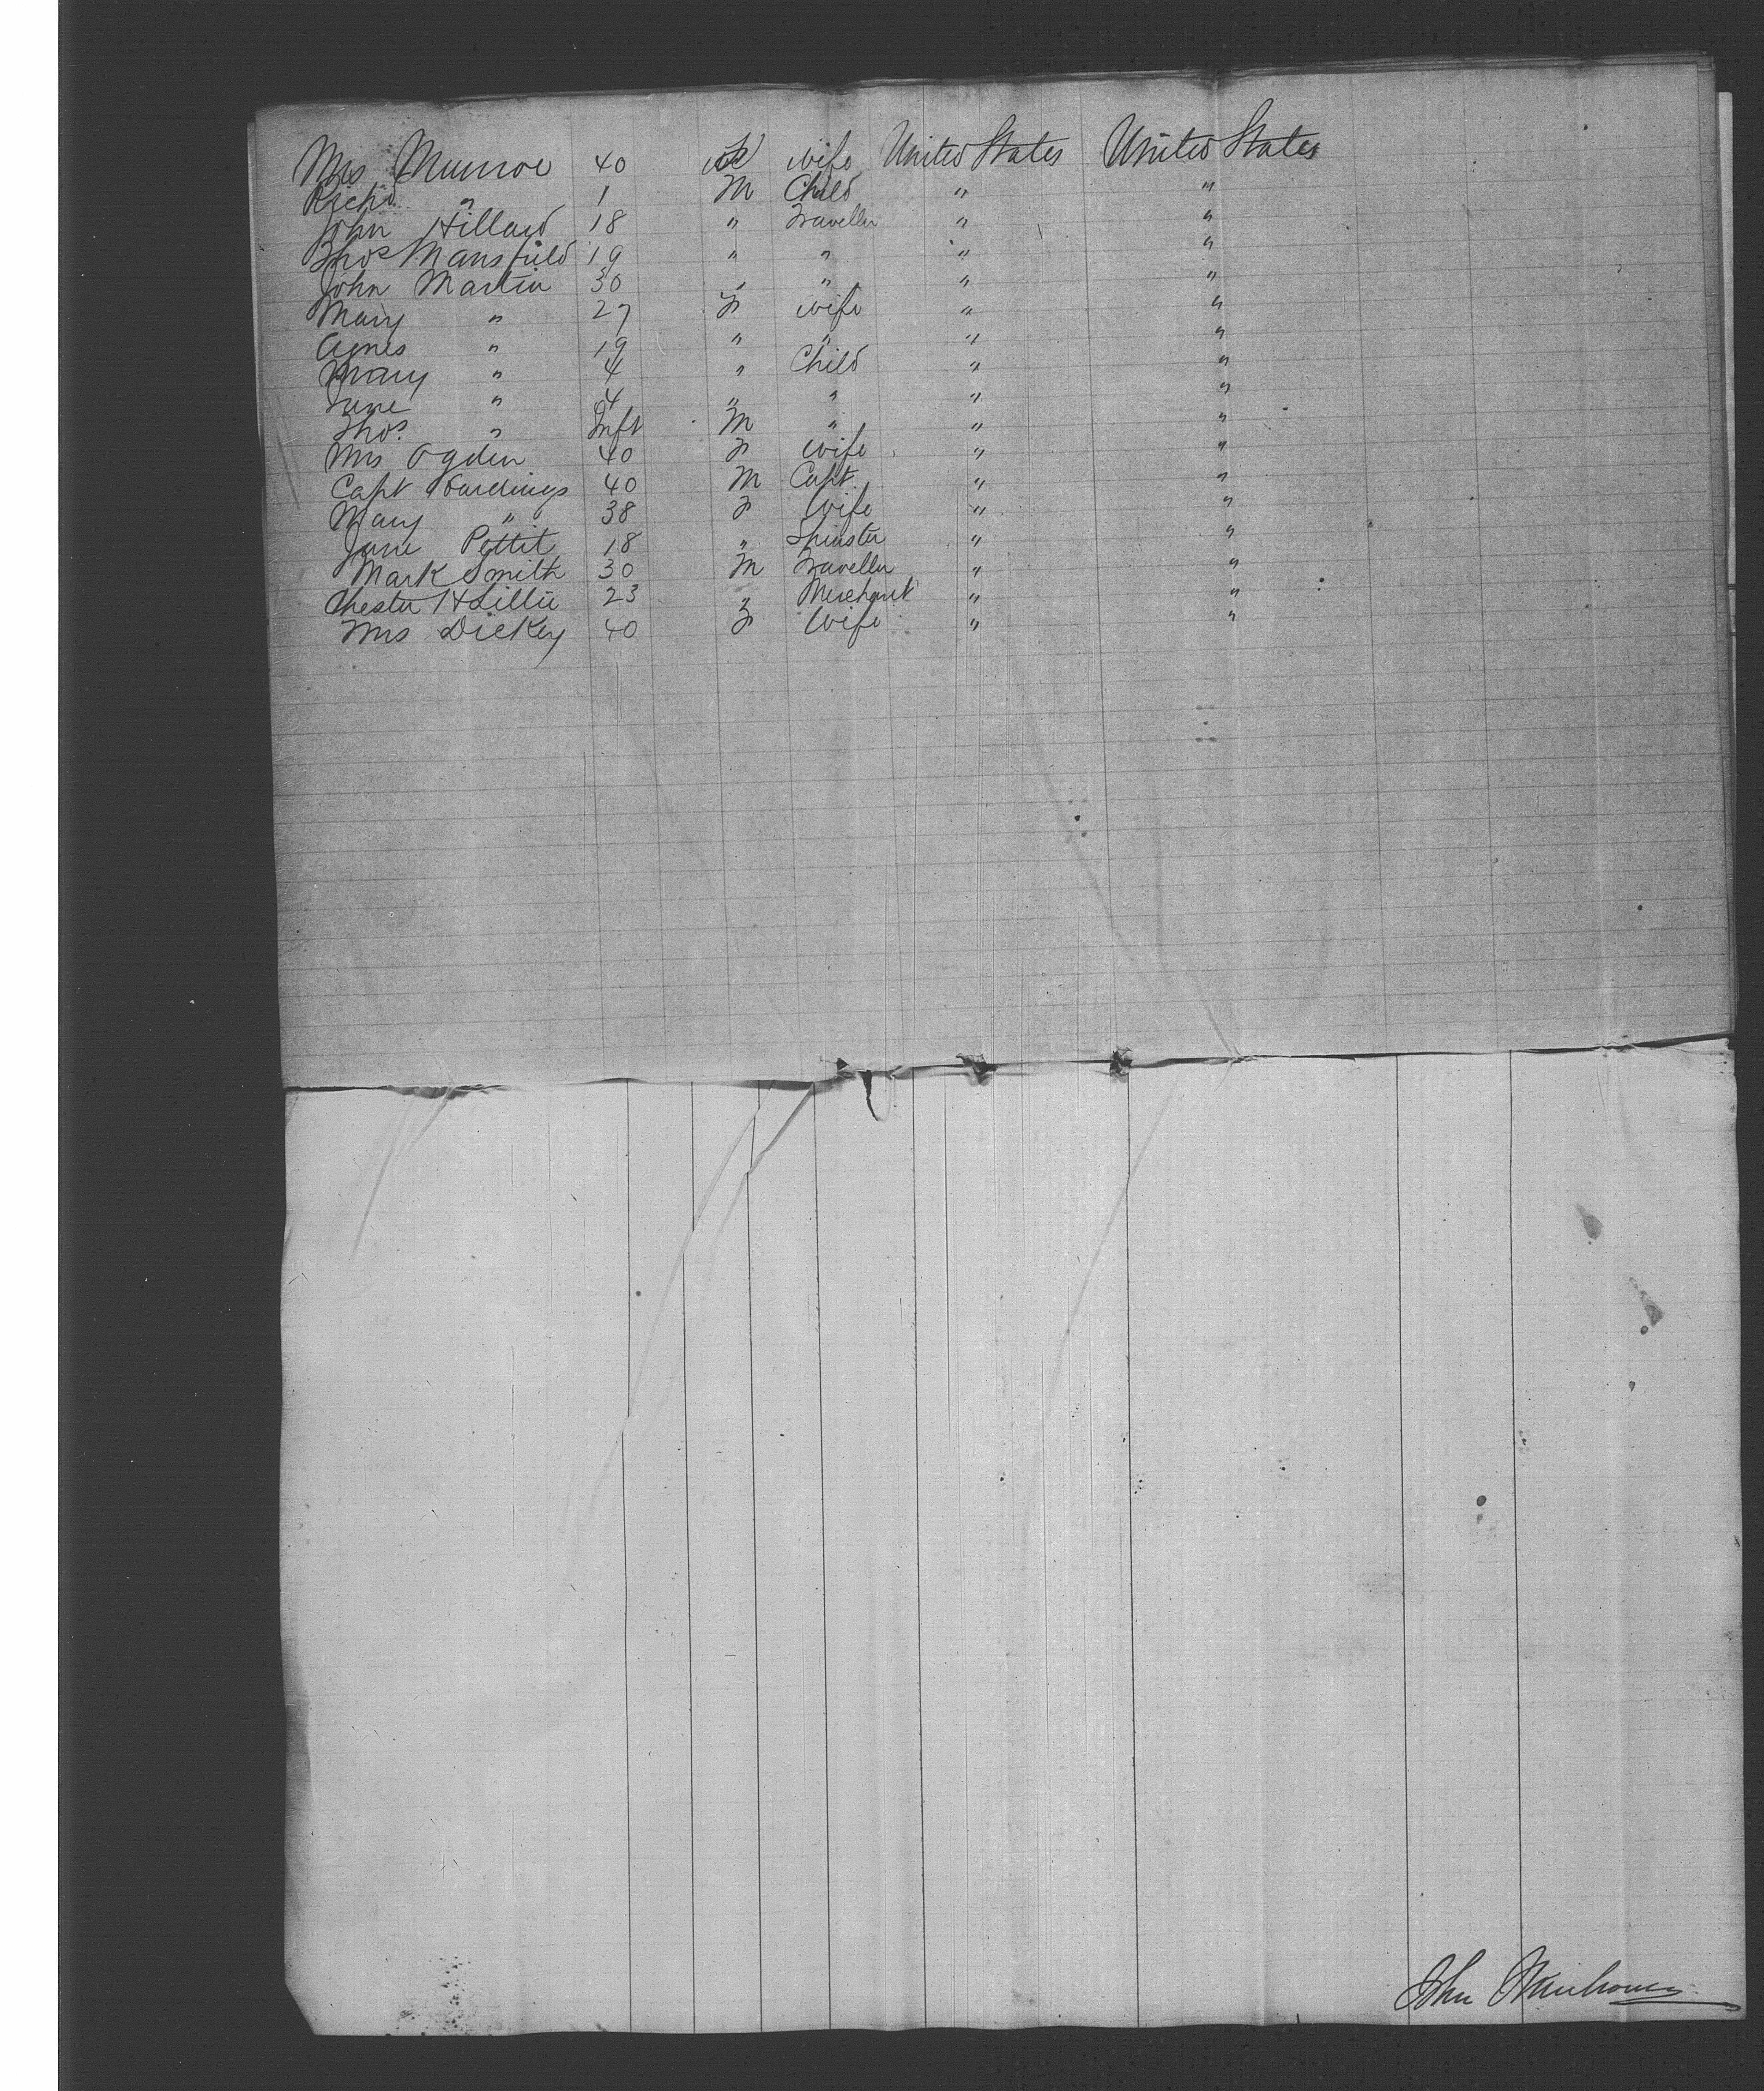 Mrs Munroe 40 wife United States United States
Richd " 1 M Child " "
John Hillard 18 " Traveller " "
Thos Mansfield 19 " " " "
John Martin 30 " " " "
Mary " 27 F wife " "
Agnes " 19 " " " "
Mary " 4 " Child " "
Jane " 4 " " " "
Thos. " Inft M " " "
Mrs Ogden 40 F wife " "
Capt 40 M Capt. " "
Mary " 38 F Wife " "
Jane Pettit 18 " Spinster " "
Mark Smith 30 M Traveller " "
Chester H Lillie 23 Merchant " "
Mrs Dickey 40 F Wife " "
John